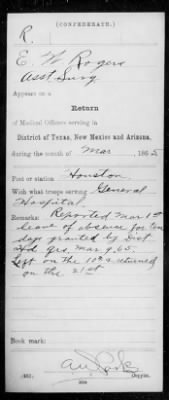 (CONFEDERATE.)
R.
E. W. Rogers
Asst Surg
Appears on a
Return
of Medical Officers serving in
District of Texas, New Mexico and Arizona,
during the month of Mar 1865
Post or station: Houston
With what troops serving: General
Hospital
Remarks: Reported Mar 1st
leave of absence for ten
days granted by Dist
Hd qrs, Mar 9, 65.
Left on the 10th & returned
on the 21st
Book mark:
Copyist.